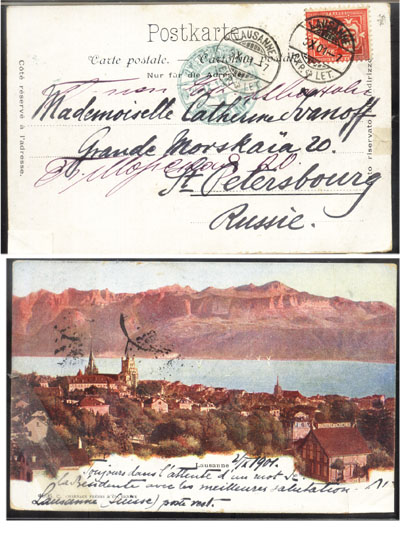 Postkarte.
Carte postale. Cartolina postale.
Nur für die Adresse.
Côté réservé à l'adresse.
LAUSANNE
EXP. LET.
LAUSANNE
3.X.01.-7
EXP. LET.
Mademoiselle Catherine Ivanoff
Grande Morskaïa 20.
St Petersbourg
Russie.
Lausanne
2/X 1901.
Toujours dans l'attente d'un mot de
la Résidente avec les meilleures salutations
Lausanne (Suisse) poste rest.